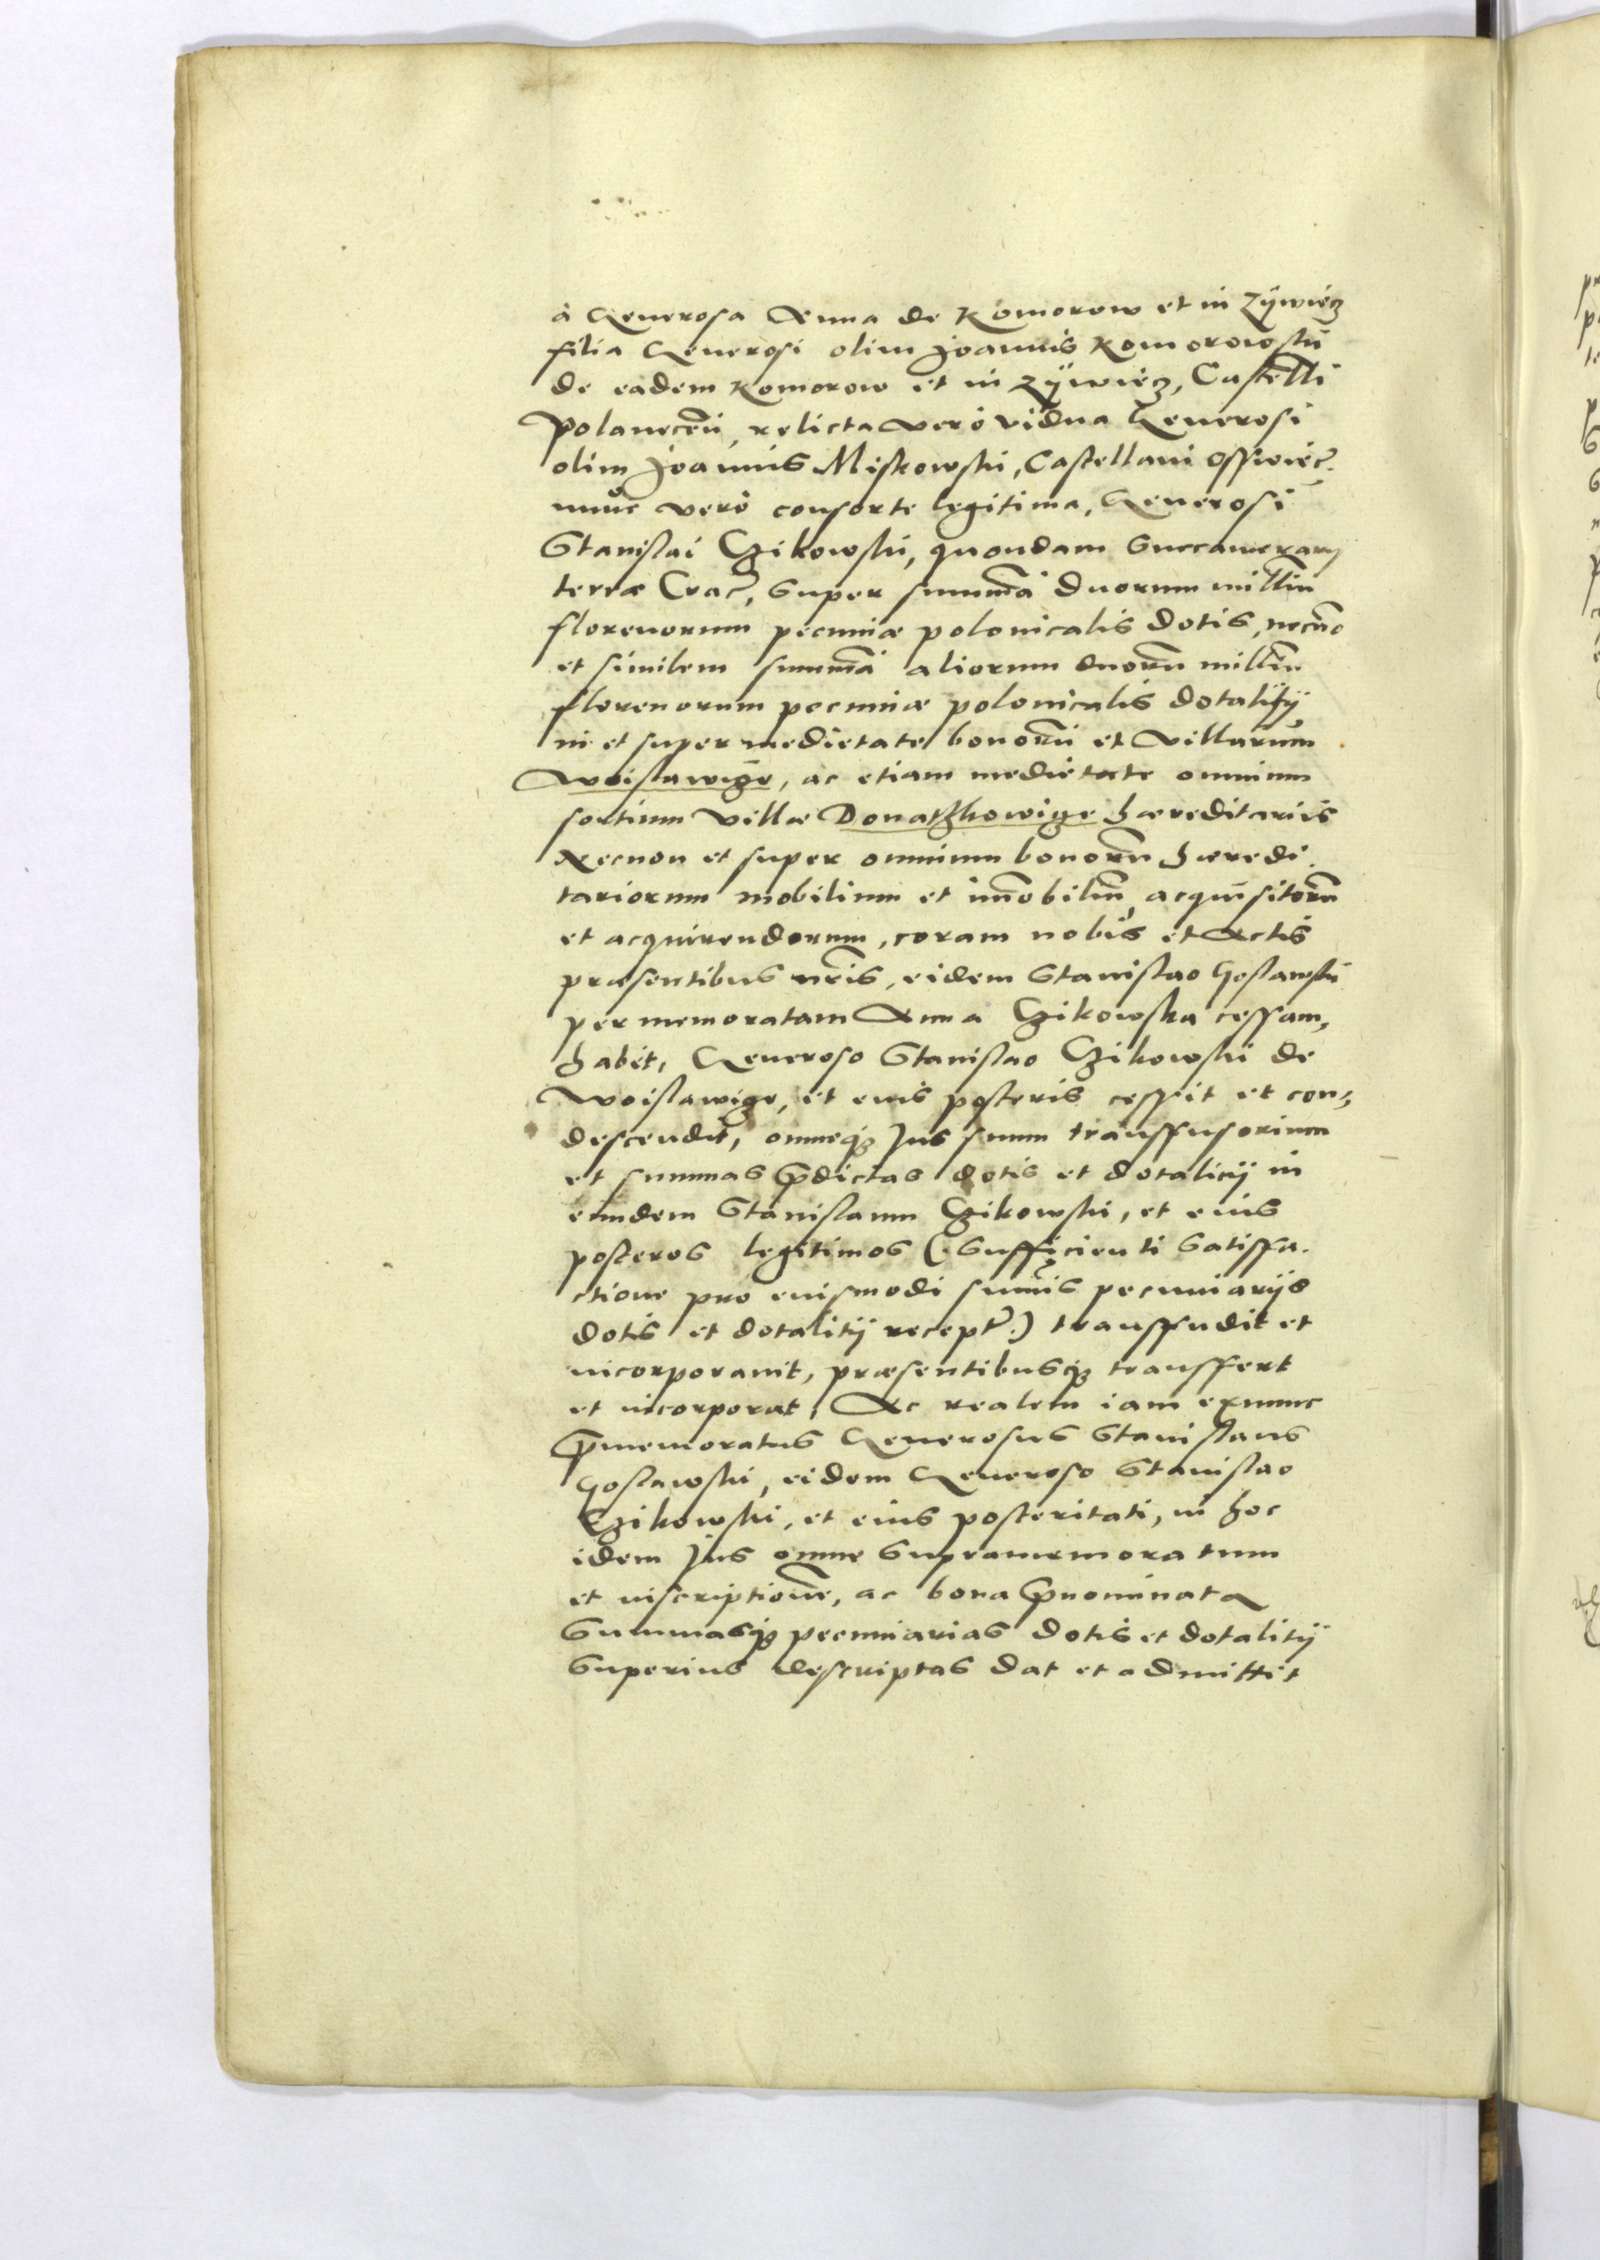 à Generosa Anna de Komorow et in Zÿwiecz
filia Generosi olim Joannis Komorowskii
de eadem Komorow et in Zÿwiecz, Castelli
Polanecen̄, relicta verò vidua Generosi
olim Joannis Miskowski, Castellani Osswiec̄.
nunc verò consorte legitima, Generosi
Stanislai Czikowski, quondam Succamerarij
terræ Crac̄, super sum̄ā duorum milliū
florenorum pecuniæ polonicalis dotis, necnō
et similem sum̄ā aliorum duorū milliū
florenorum pecuniæ polonicalis dotalitij
in et super medietate bonorū et villarum
Woislawicze, ac etiam medietate omnium
sortium villæ Donatzkowicze hæreditarijs
Necnon et super omnium bonorū hæredi
tariorum mobilium et im̄obiliū acquisitorū
et acquirendorum, coram nobis et Actis
præsentibus nr̄is, eidem Stanislao Goslawski
per memoratam Anna Czikowska cessam,
habet, Generoso Stanislao Czikowski de
Woislawicze, et eius posteris cessit et con,
descendit, omneq₃ Jus suum transfusorium
et summas p̄dictas dotis et dotalicij in
eundem Stanislaum Czikowski, et eius
posteros legitimos (: sufficienti satisfa.
ctione pro eiusmodi sum̄is pecuniarijs
dotis et dotalitij recept̄ :) transfudit et
incorporauit, præsentibusq₃ transffert
et incorporat, Ac realem iam exnunc
p̄memoratus Generosus Stanislaus
Goslawski, eidem Generoso Stanislao
Czikowski, et eius posteritati, in hoc
idem Jus omne supramemoratum
et inscriptionē, ac bona p̄nominata
Summasq₃ pecuniarias dotis et dotalitij
superius descriptas dat et admittit